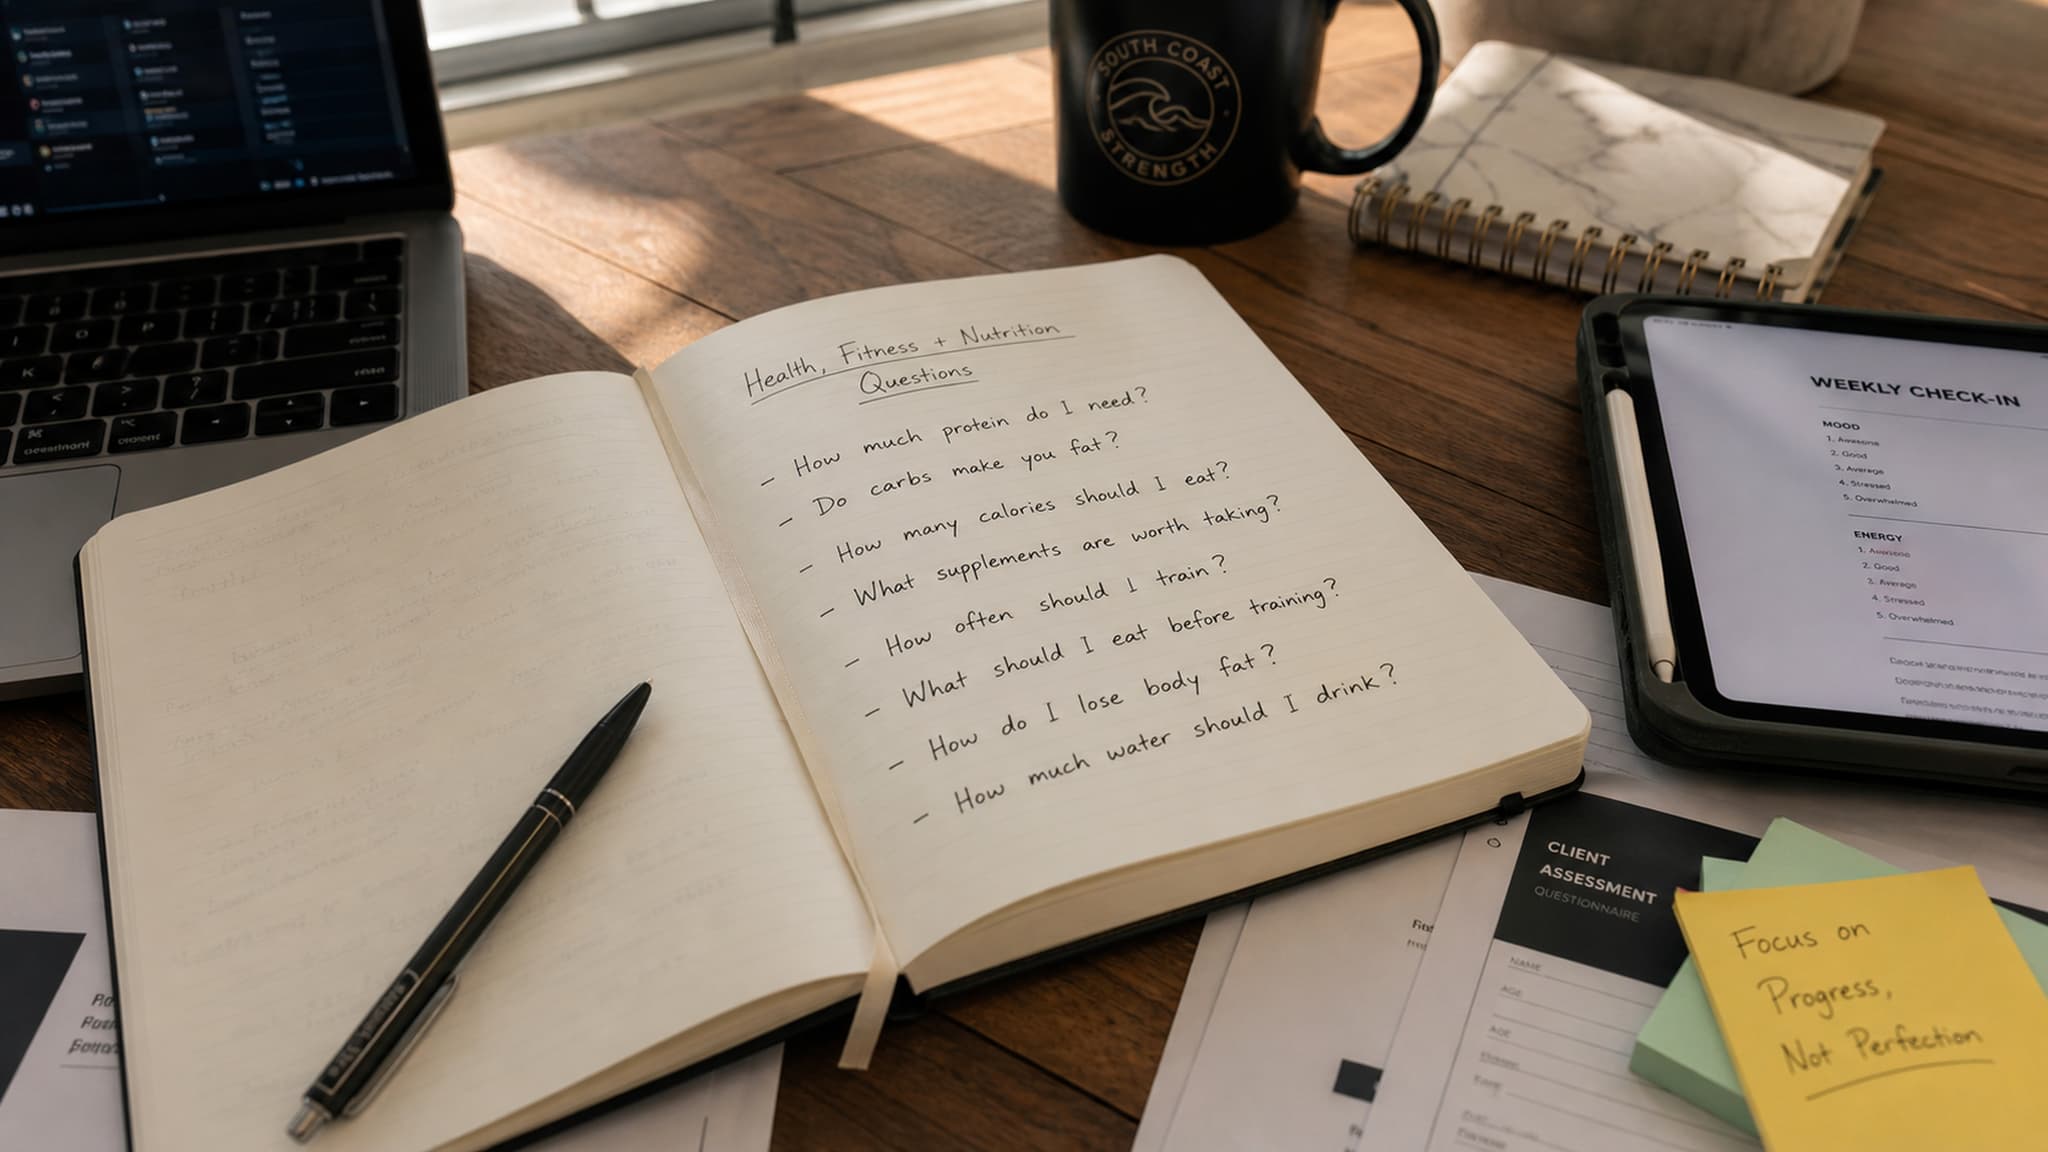 SOUTH COAST
STRENGTH
Health, Fitness + Nutrition
Questions
- How much protein do I need?
- Do carbs make you fat?
- How many calories should I eat?
- What supplements are worth taking?
- How often should I train?
- What should I eat before training?
- How do I lose body fat?
- How much water should I drink?
WEEKLY CHECK-IN
MOOD
1. Awesome
2. Good
3. Average
4. Stressed
5. Overwhelmed
ENERGY
1. Awesome
2. Good
3. Average
4. Stressed
5. Overwhelmed
CLIENT
ASSESSMENT
QUESTIONNAIRE
NAME
AGE
AGE
Focus on
Progress,
Not Perfection